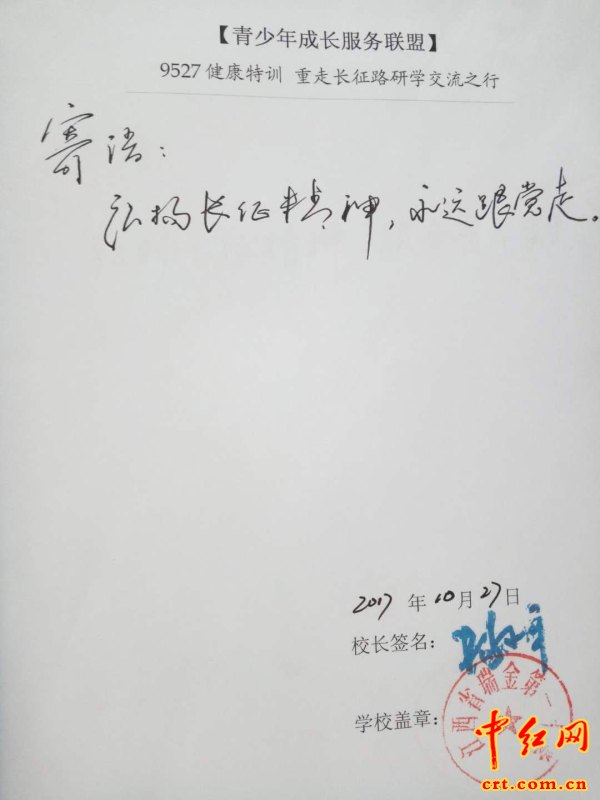 【青少年成长服务联盟】
9527 健康特训 重走长征路研学交流之行
寄语：
弘扬长征精神，永远跟党走。
2017 年 10 月 27 日
校长签名：
学校盖章：
江西省瑞金第一
中红网
crt.com.cn